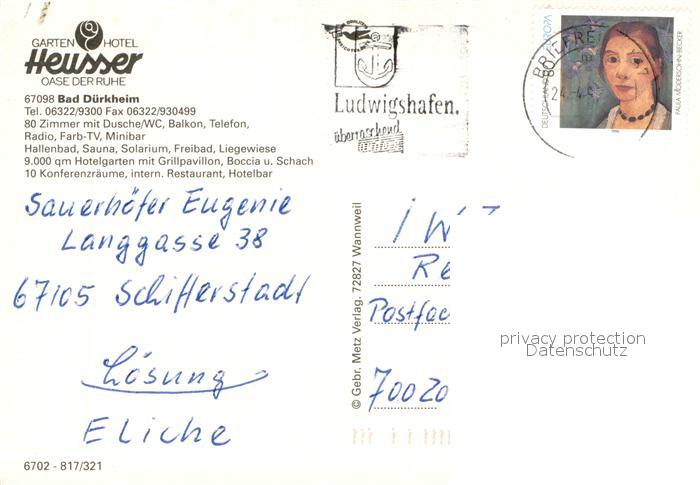 GARTEN HOTEL
Heusser
OASE DER RUHE
67098 Bad Dürkheim
Tel. 06322/9300 Fax 06322/930499
80 Zimmer mit Dusche/WC, Balkon, Telefon,
Radio, Farb-TV, Minibar
Hallenbad, Sauna, Solarium, Freibad, Liegewiese
9.000 qm Hotelgarten mit Grillpavillon, Boccia u. Schach
10 Konferenzräume, intern. Restaurant, Hotelbar
Sauerhöfer Eugenie
Langgasse 38
67105 Schifferstadt
Lösung
Eliche
6702 - 817/321
© Gebr. Metz Verlag. 72827 Wannweil
Ludwigshafen.
überraschend
BRIEFRE
80
EUROPA
PAULA MODERSOHN-BECKER
Re
Postfac
70020
privacy protection
Datenschutz